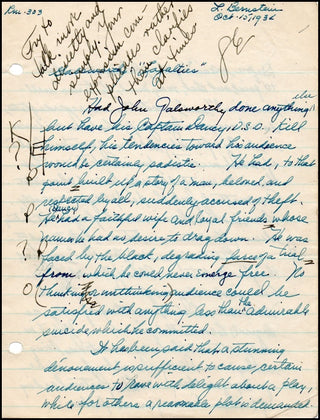 Rm - 303
L. Bernstein
Oct. 15, 1934
Try to
talk more
directly and
simply. Your
expression com-
plicates rather
than clarifies
at times
"Loyalties"
Had John Galsworthy done anything else
but have his Captain Dancy, D.S.O., kill
himself, his tendencies toward his audience
would be certainly sadistic. He had, to that
point, built up a story of a man, beloved, and
respected by all, suddenly accused of theft.
He had a faithful wife and loyal friends whose
names he had no desire to drag down. He was
faced by the black, degrading farce of a trial
from which he could never emerge free. No
thinking (or unthinking) audience could be
satisfied with anything less than the admirable
suicide which he committed.
It has been said that a stunning
dénouement is sufficient to cause certain
audiences to rave with delight about a play,
while for others a reasonable plot is demanded.